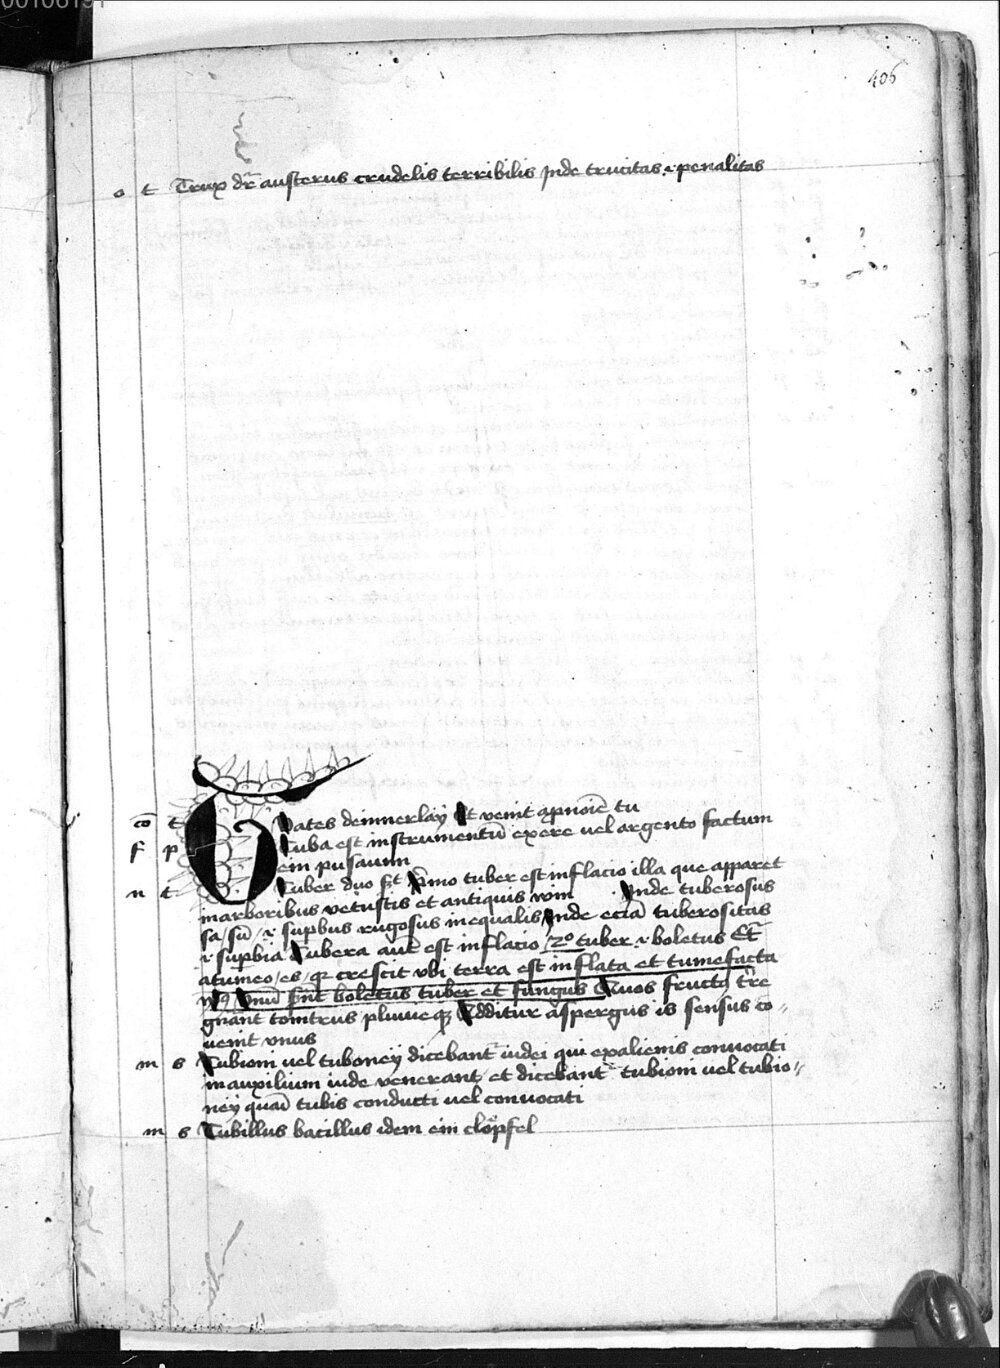 00106191
406
o t Trux dr̄ austerus crudelis terribilis Inde trucitas .i. penalitas
co t Tuates deinnerlay Et venit a pnoīe tu
f p Tuba est instrumentū ex ere vel argento factum
ein pusaunn
n t Tuber duo st̄ Primo tuber est inflacio illa que apparet
marboribus vetustis et antiquis Inde tuberosus
sa / sū / .i. supbus rugosus inequalis Inde eciā tuberositas
.i. supbia Tubera aut̄ est inflacio / 2o tuber .i. boletus Et
a tumeo / es / qz crescit vbi terra est inflata et tumefacta
Vnū sūt boletus tuber et fungus Quos fructq tr̄re
gnant tonitrus pluuieqz Additur aspergus is sensus co-
uenit vnus
m s Tubioni vel tuboney dicebant iudei qui ex alienis conuocati
in auxilium iude venerant et dicebant tubiom vel tubio-
ney quasi tubis conducti vel conuocati
m s Tubillus bacillus idem ein clöpfel